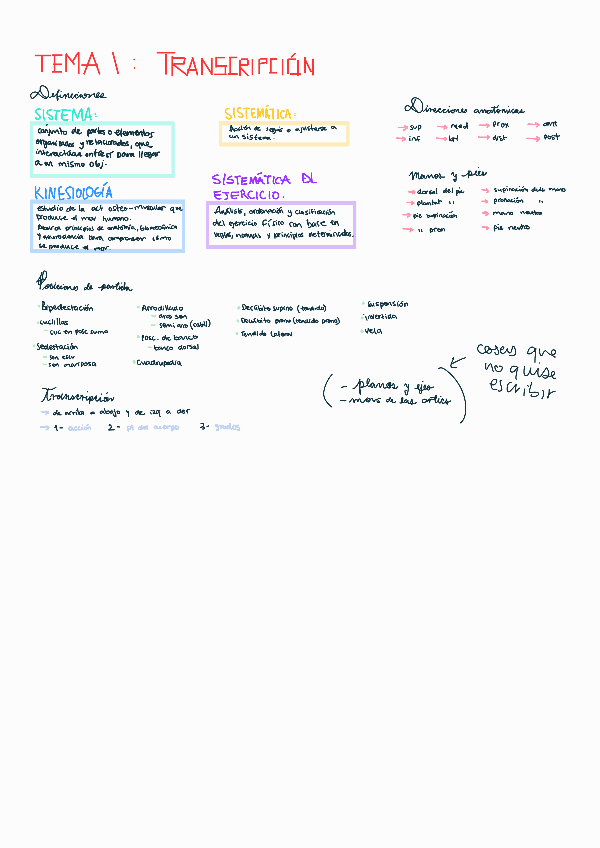 TEMA 1: TRANSCRIPCIÓN
Definiciones
SISTEMA:
conjunto de partes o elementos
organizados y relacionados, que
interactúan entre sí para llegar
a un mismo obj.
SISTEMÁTICA:
Acción de seguir o ajustarse a
un sistema.
KINESIOLOGÍA
estudio de la act osteo-muscular que
produce el mov humano.
principios de anatomía, biomecánica
y neurociencia para comprender cómo
se produce el mov.
SISTEMÁTICA DL
EJERCICIO:
Análisis, ordenación y clasificación
del ejercicio físico con base en
reglas, normas y principios determinados.
Direcciones anatómicas
→ sup → med → prox → ant
→ inf → lat → dist → post
Manos y pies
→ dorsal del pie → supinación de la mano
→ plantar " → pronación "
→ pie supinación → mano neutra
→ " pron → pie neutro
Posiciones de partida
• Bipedestación
• cuclillas
- cuc en posc suma
• Sedestación
- sen escu
- sen mariposa
• Arrodillado
- arro sen
- semi arro (cabll)
• Posc. de banco
- banco dorsal
• Cuadrupedia
• Decúbito supino (tendido)
• Decúbito prono (tendido prono)
• Tendido lateral
• Suspensión
• invertida
• vela
Transcripción
→ de arriba a abajo y de izq a der
→ 1- acción 2- pt del cuerpo 3- grados
( - planos y ejes
- movs de las artics )
← cosas que
no quise
escribir